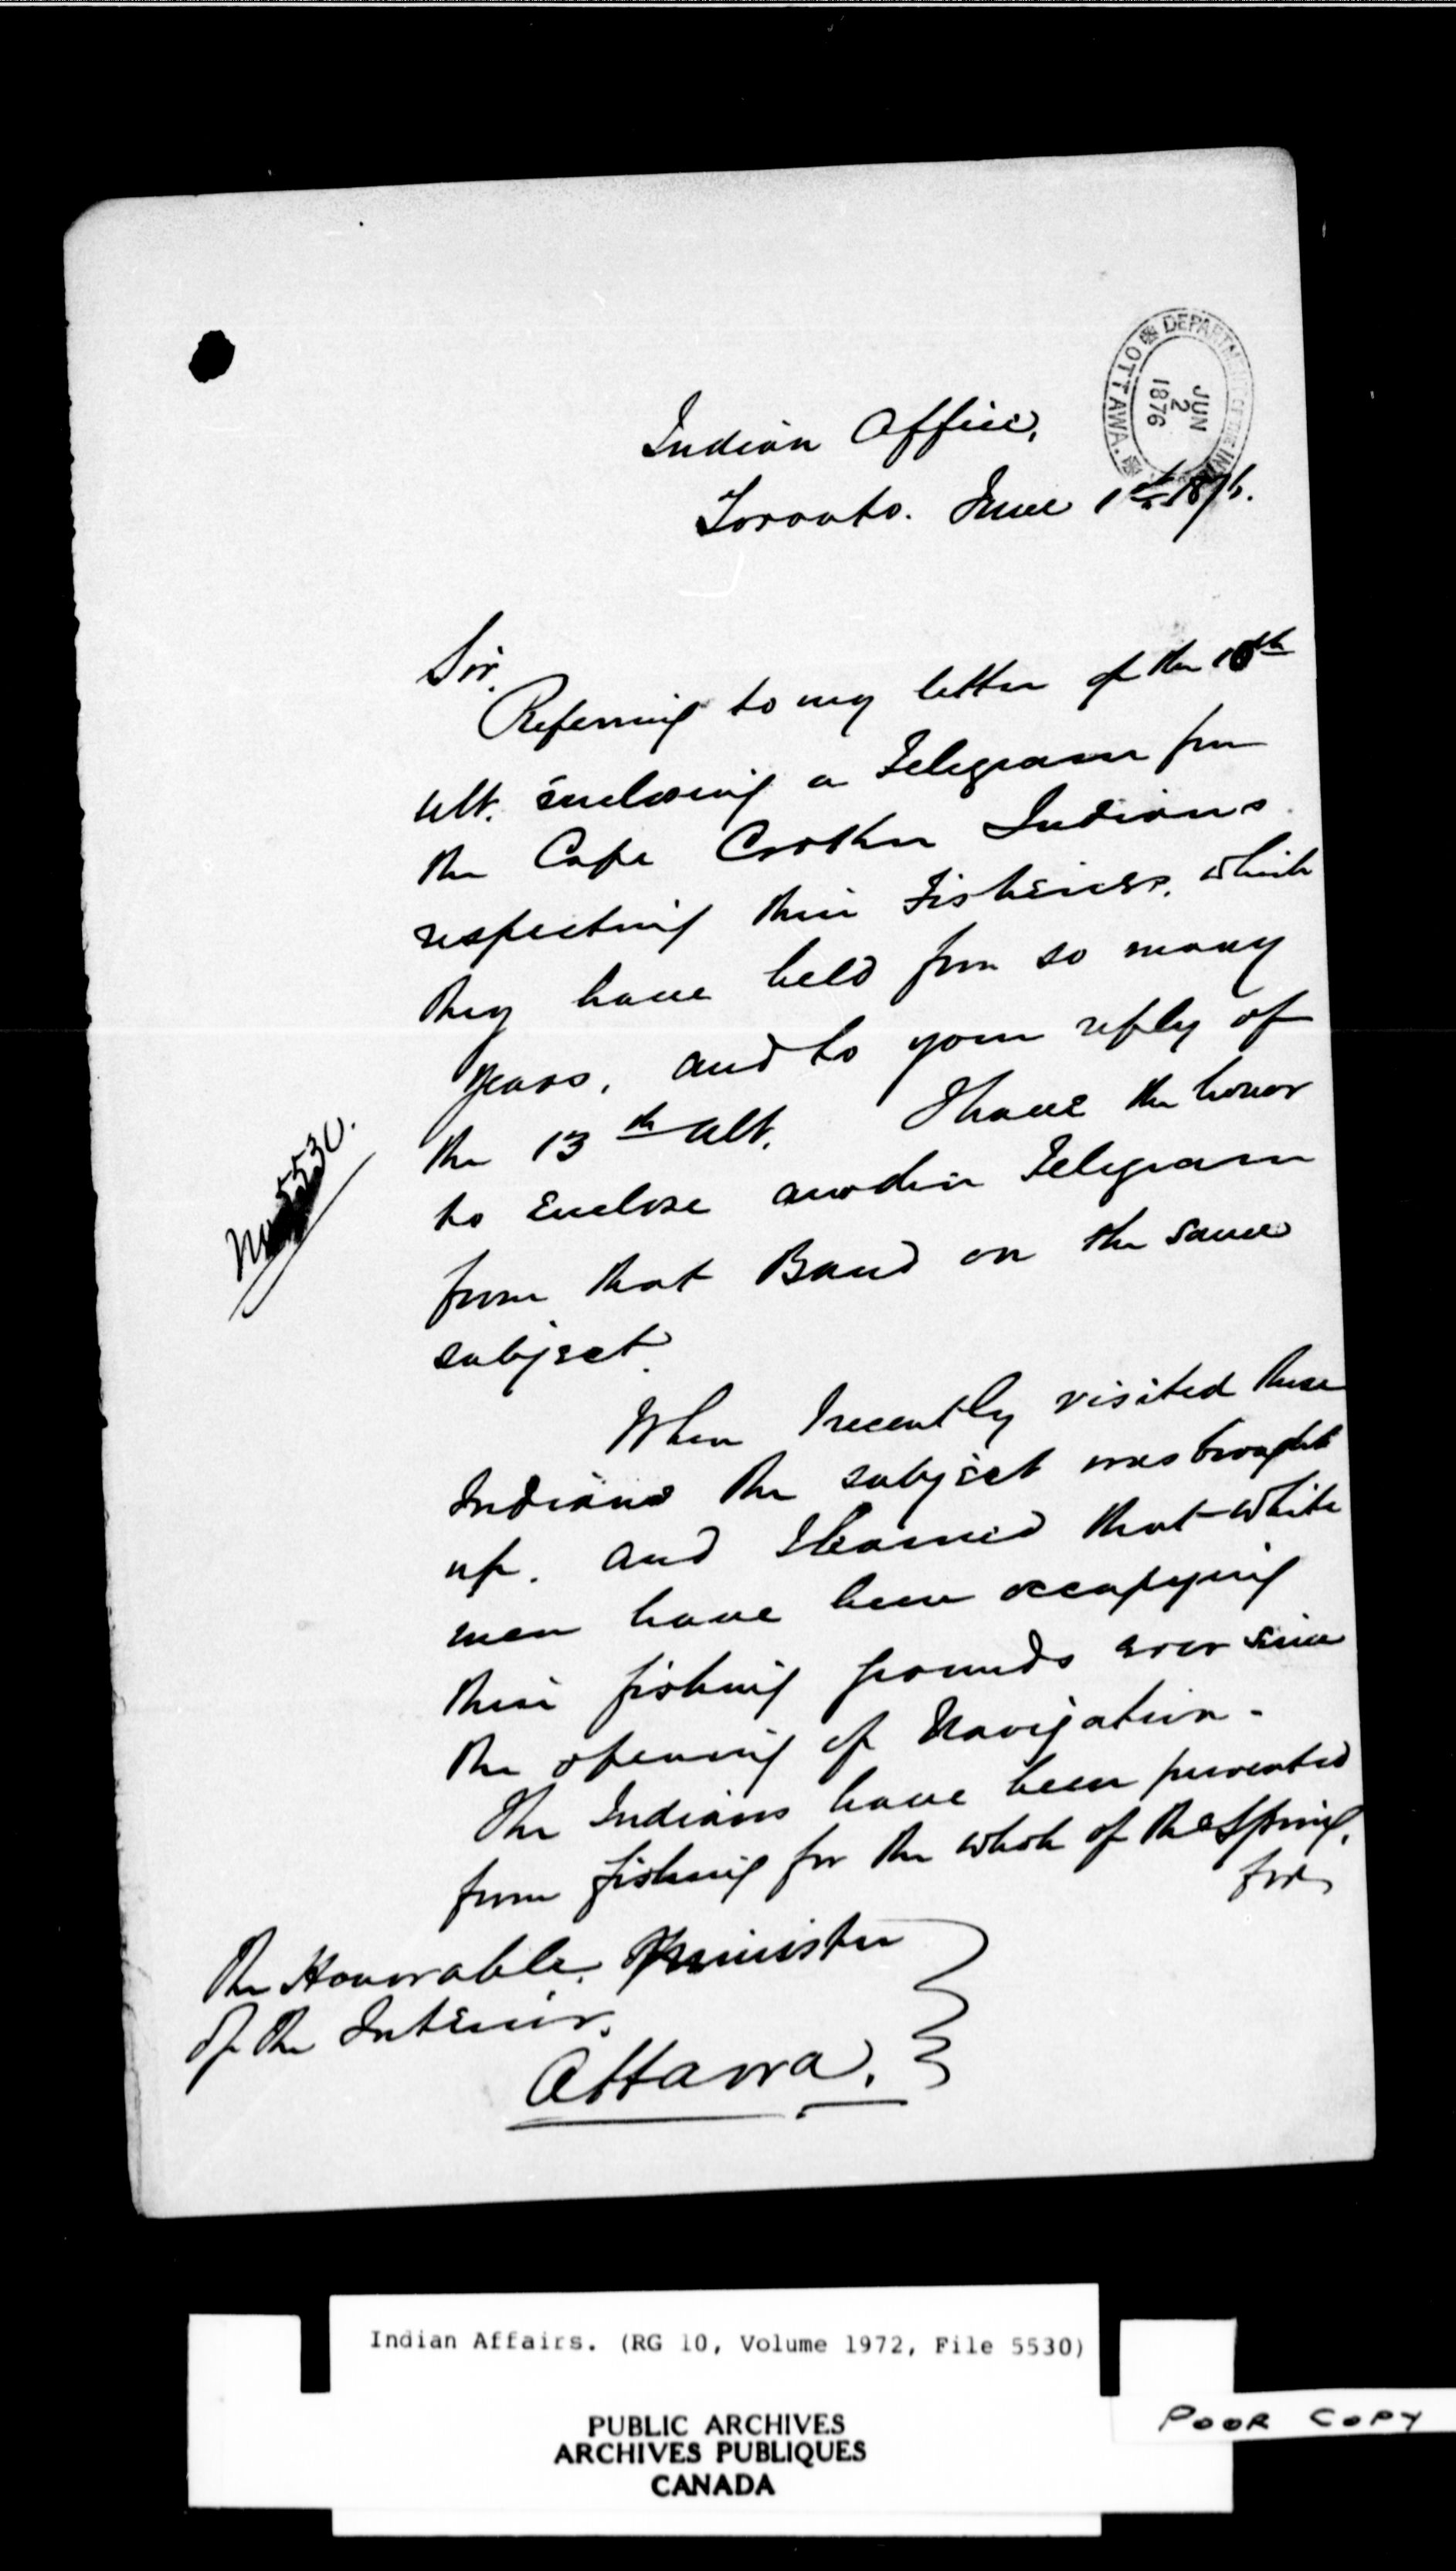 DEPARTMENT OF THE IN
OTTAWA.
JUN
2
1876
Indian Office,
Toronto. June 1st 1876.
Sir,
Referring to my letter of the 10th
ult. enclosing a Telegram from
the Cape Croker Indians
respecting their Fisheries, which
they have held for so many
years, and to your reply of
the 13th ult. I have the honor
to Enclose another Telegram
from that Band on the same
subject.
When I recently visited these
Indians the subject was brought
up, and I learned that white
men have been occupying
their fishing grounds ever since
the opening of Navigation.
The Indians have been prevented
from fishing for the whole of the Spring,
for
No 5530.
The Honorable, Minister
Of the Interior,
Ottawa.
Indian Affairs. (RG 10, Volume 1972, File 5530)
PUBLIC ARCHIVES
ARCHIVES PUBLIQUES
CANADA
POOR COPY